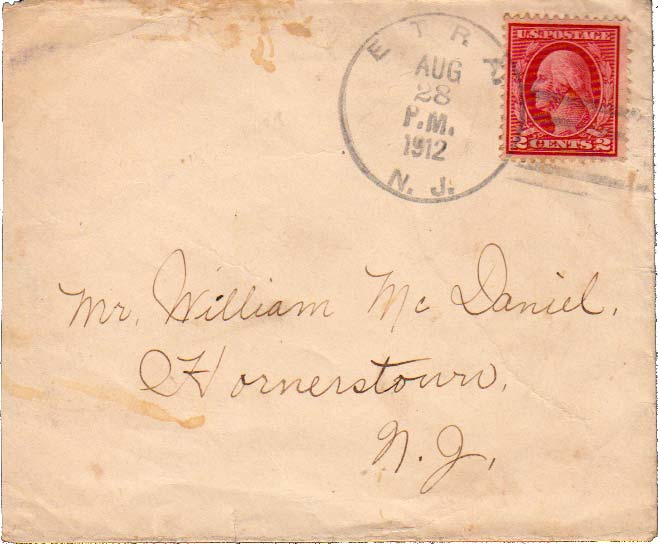 ETRA
AUG
28
P.M.
1912
N. J.
U.S. POSTAGE
2 CENTS 2
Mr. William Mc Daniel.
Hornerstown.
N. J.